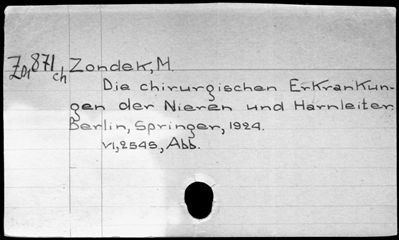 Zo, 871 ch
Zondek, M.
Die chirurgischen Erkrankun-
gen der Nieren und Harnleiter.
Berlin, Springer, 1924.
VI, 254S, Abb.